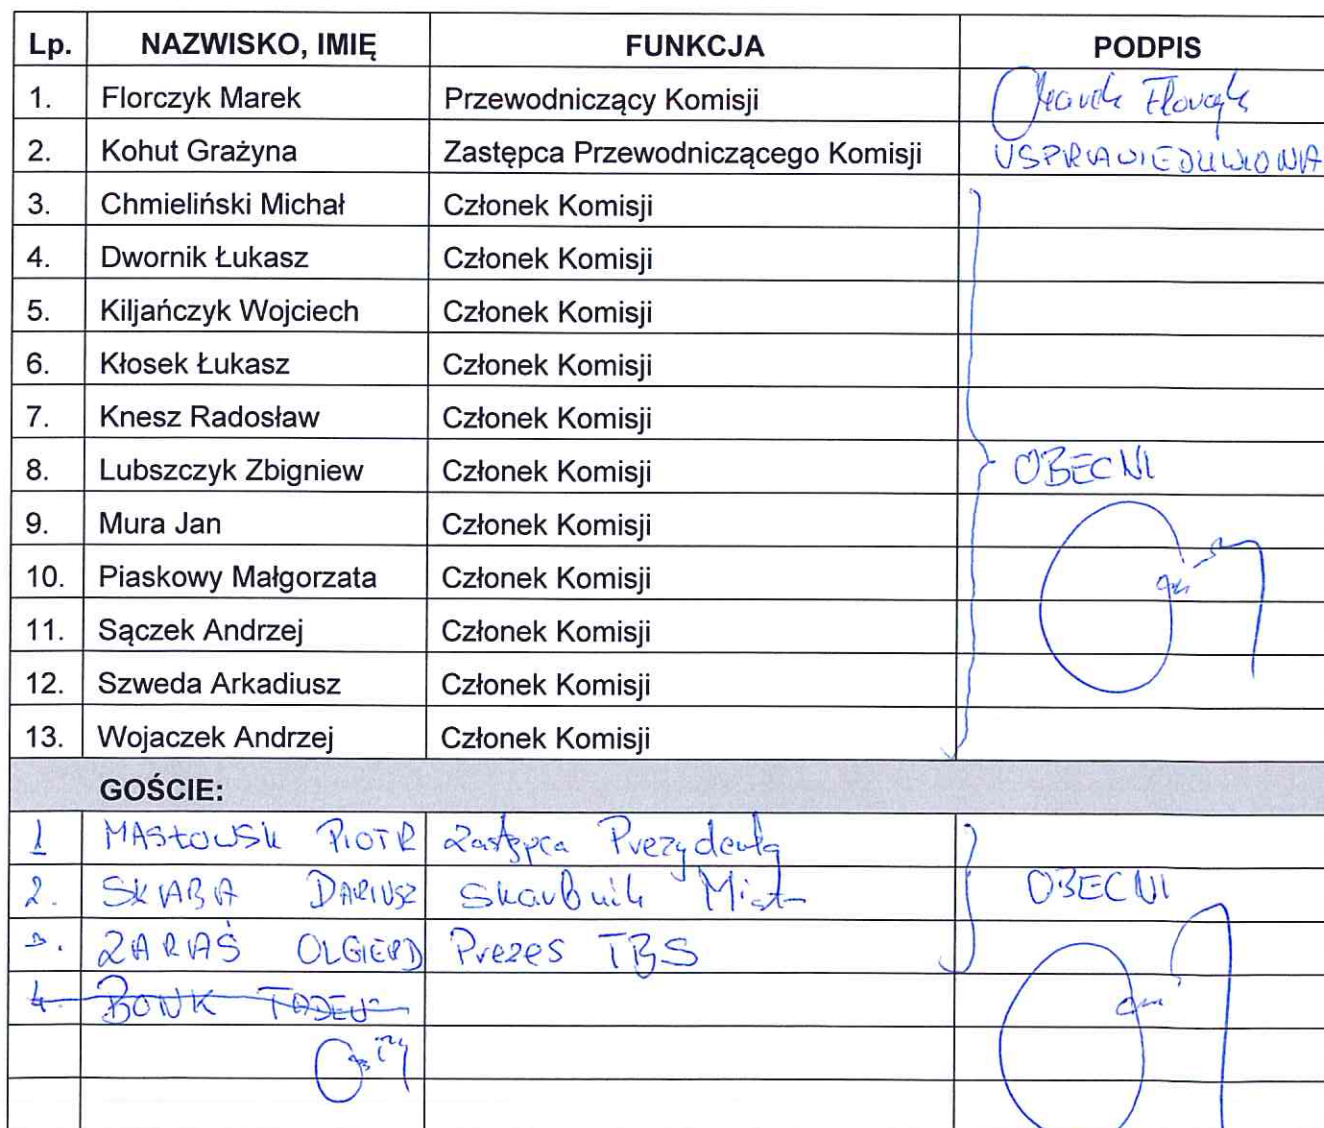 Lp. NAZWISKO, IMIĘ FUNKCJA PODPIS
1. Florczyk Marek Przewodniczący Komisji Marek Florczyk
2. Kohut Grażyna Zastępca Przewodniczącego Komisji USPRAWIEDLIWIONA
3. Chmieliński Michał Członek Komisji
4. Dwornik Łukasz Członek Komisji
5. Kiljańczyk Wojciech Członek Komisji
6. Kłosek Łukasz Członek Komisji
7. Knesz Radosław Członek Komisji
8. Lubszczyk Zbigniew Członek Komisji OBECNI
9. Mura Jan Członek Komisji
10. Piaskowy Małgorzata Członek Komisji
11. Sączek Andrzej Członek Komisji
12. Szweda Arkadiusz Członek Komisji
13. Wojaczek Andrzej Członek Komisji
GOŚCIE:
1 MASŁOWSKI PIOTR Zastępca Prezydenta
2. SKABA DARIUSZ Skarbnik Miasta OBECNI
3. ZARAŚ OLGIERD Prezes TBS
4. BONK TADEU